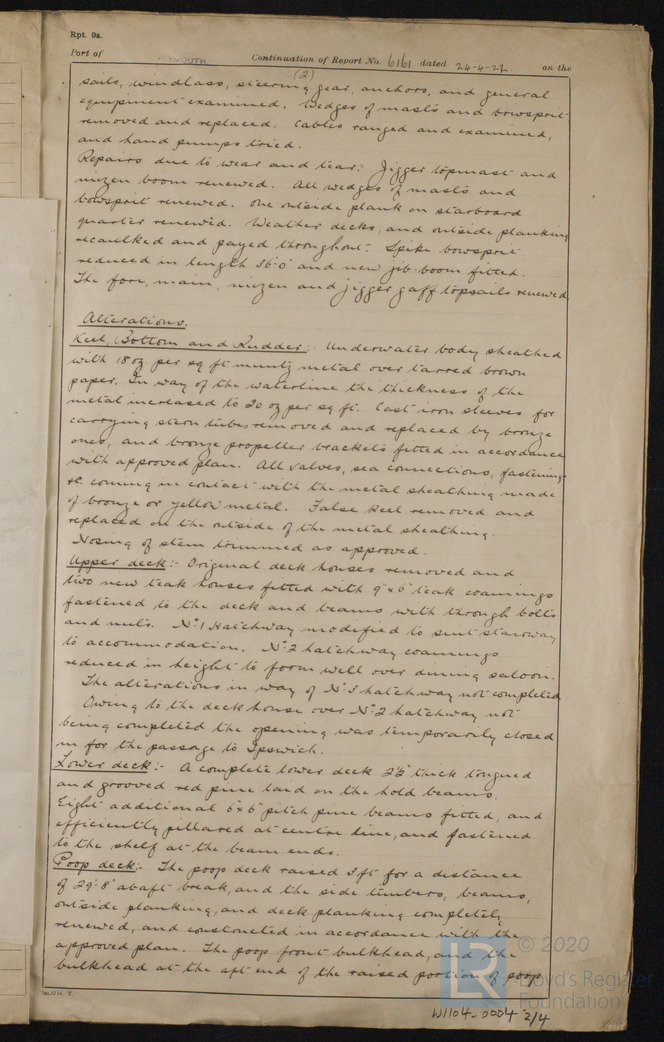 Rpt. 9a.
Port of MOUTH Continuation of Report No. 6161 dated 24-4-22. on the
(2)
sails, windlass, steering gear, anchors, and general
equipment examined. Wedges of masts and bowsprit
removed and replaced. Cables ranged and examined,
and hand pumps tried.
Repairs due to wear and tear: Jigger topmast and
mizen boom renewed. All wedges of masts and
bowsprit renewed. One outside plank on starboard
quarter renewed. Weather decks, and outside planking
recaulked and payed throughout. Spike bowsprit
reduced in length 36'-0" and new jib-boom fitted.
The fore, main, mizen and jigger gaff topsails renewed
Alterations.
Keel, Bottom and Rudder:- Underwater body sheathed
with 18 oz per sq ft muntz metal over tarred brown
paper. In way of the waterline the thickness of the
metal increased to 20 oz per sq ft. Cast iron sleeves for
carrying stern tubes removed and replaced by bronze
ones, and bronze propeller brackets fitted in accordance
with approved plan. All valves, sea connections, fastenings
&c coming in contact with the metal sheathing made
of bronze or yellow metal. False keel removed and
replaced on the outside of the metal sheathing.
Nosing of stem trimmed as approved.
Upper deck:- Original deck houses removed and
two new teak houses fitted with 9" x 6" teak coamings
fastened to the deck and beams with through bolts
and nuts. No 1 Hatchway modified to suit stairway
to accommodation. No 2 hatchway coamings
reduced in height to form well over dining saloon.
The alterations in way of No 3 hatchway not completed
Owing to the deck house over No 2 hatchway not
being completed the opening was temporarily closed
in for the passage to Ipswich.
Lower deck:- A complete lower deck 2½" thick tongued
and grooved red pine laid on the hold beams.
Eight additional 6" x 6" pitch pine beams fitted, and
efficiently pillared at centre line, and fastened
to the shelf at the beam ends.
Poop deck:- The poop deck raised 3 ft for a distance
of 29'-8" abaft break, and the side timbers, beams,
outside planking, and deck planking completely
renewed, and constructed in accordance with the
approved plan. The poop front bulkhead, and the
bulkhead at the aft end of the raised portion of poop
© 2020
Lloyd's Register
Foundation
LR
W1104-0004 2/4